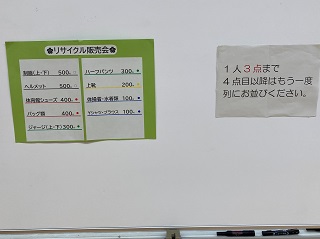 ✿リサイクル販売会✿
制服(上・下) 500
ヘルメット 500
体育館シューズ 400
バッグ類 400
ジャージ(上・下) 300
ハーフパンツ 300
上靴 200
体操着・水着類 100
Yシャツ・ブラウス 100
1人3点まで
4点目以降はもう一度
列にお並びください。